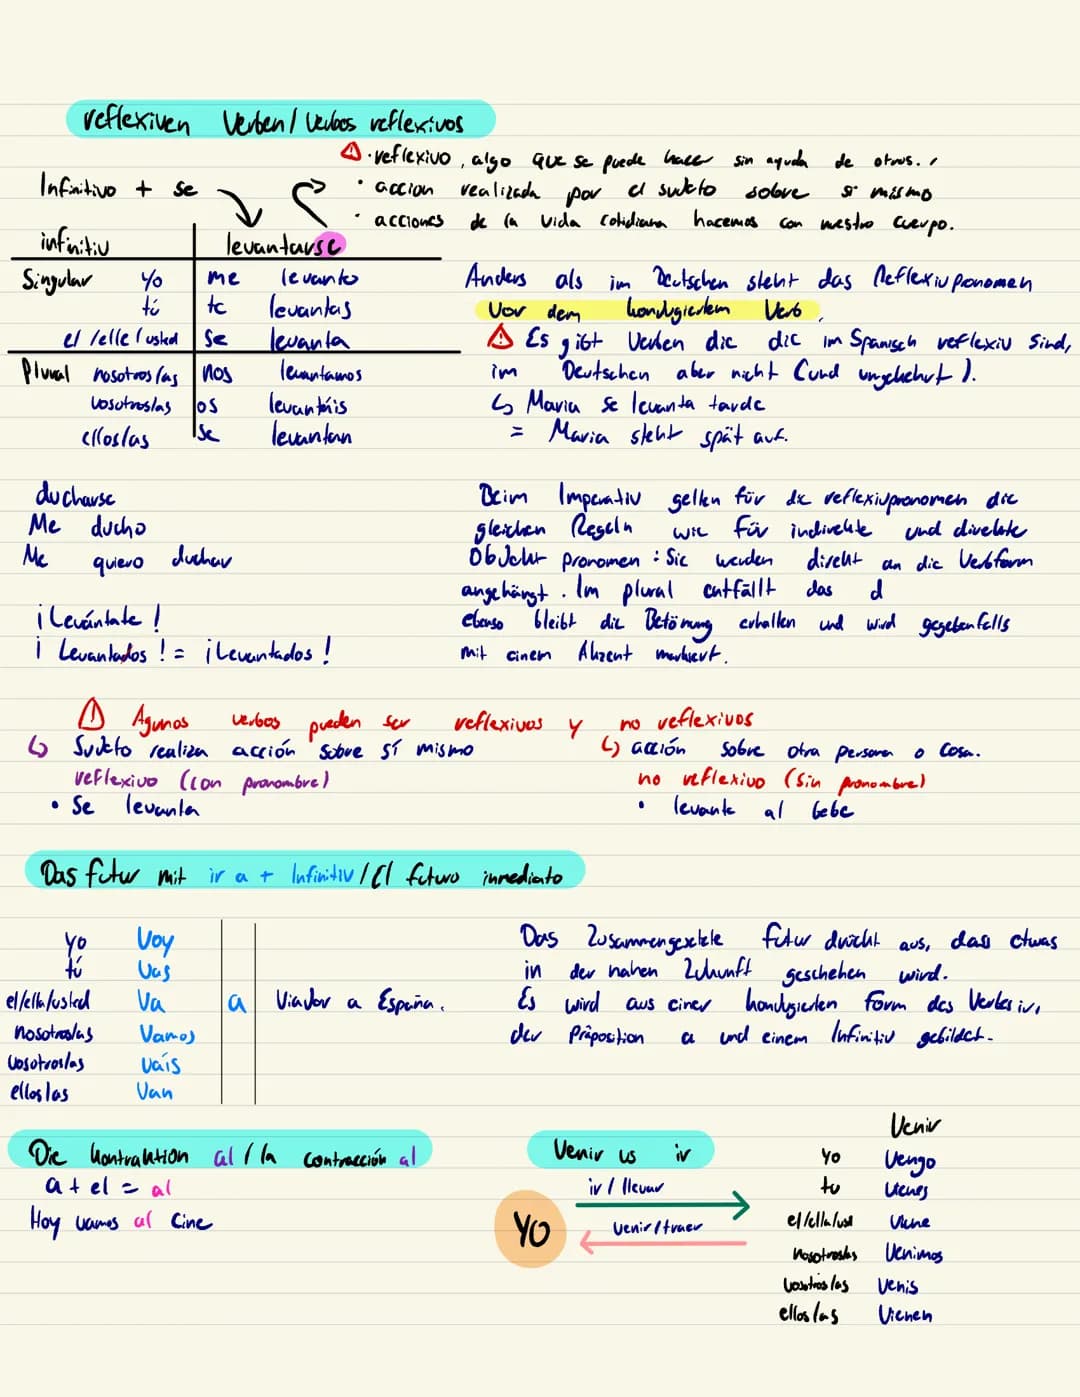 reflexiven Verben / Verbos reflexivos
⚠ · reflexivo, algo que se puede hacer sin ayuda de otros.
Infinitivo + se
· accion realizada por el sujeto sobre si mismo
· acciones de la vida cotidiana hacemos con nuestro cuerpo.
infinitiv levantarse
Singular yo me levanto
tú te levantas
el /elle /usted se levanta
Plural nosotros/as nos levantamos
vosotros/as os levantáis
ellos/as se levantan
Anders als im Deutschen steht das Reflexivpronomen
vor dem konjugiertem Verb.
⚠ Es gibt Verben die die im Spanisch reflexiv sind,
im Deutschen aber nicht (und umgekehrt).
↳ Maria se levanta tarde
= Maria steht spät auf.
ducharse
Me ducho
Me quiero duchar
¡Levántate!
¡Levantados! = ¡Levantados!
Beim Imperativ gelten für die reflexivpronomen die
gleichen Regeln wie für indirekte und direkte
Objekt pronomen: Sie werden direkt an die Verbform
angehängt. Im plural entfällt das d
ebenso bleibt die Betonung erhalten und wird gegebenfalls
mit einem Akzent markiert.
⚠ Agunos verbos pueden ser reflexivos y no reflexivos
↳ Sujeto realiza acción sobre sí mismo
reflexivo (con pronombre)
• Se levanta
↳ acción sobre otra persona o cosa.
no reflexivo (sin pronombre)
• levante al bebe
Das futur mit ir a + Infinitiv / El futuro inmediato
yo Voy
tú Vas
el/ella/usted Va a Viajar a España.
nosotros/as Vamos
vosotros/as Vais
ellos/as Van
Das Zusammengesetzte futur drückt aus, dass etwas
in der nahen Zukunft geschehen wird.
Es wird aus einer konjugierten Form des Verbes ir,
der Präposition a und einem Infinitiv gebildet.
Die Kontraktion al / la contracción al
a + el = al
Hoy vamos al cine
Venir vs ir
ir / llevar
YO
venir/traer
Venir
yo Vengo
tu Vienes
el/ella/usd Viene
nosotros/as Venimos
vosotros/as Venis
ellos/as Vienen